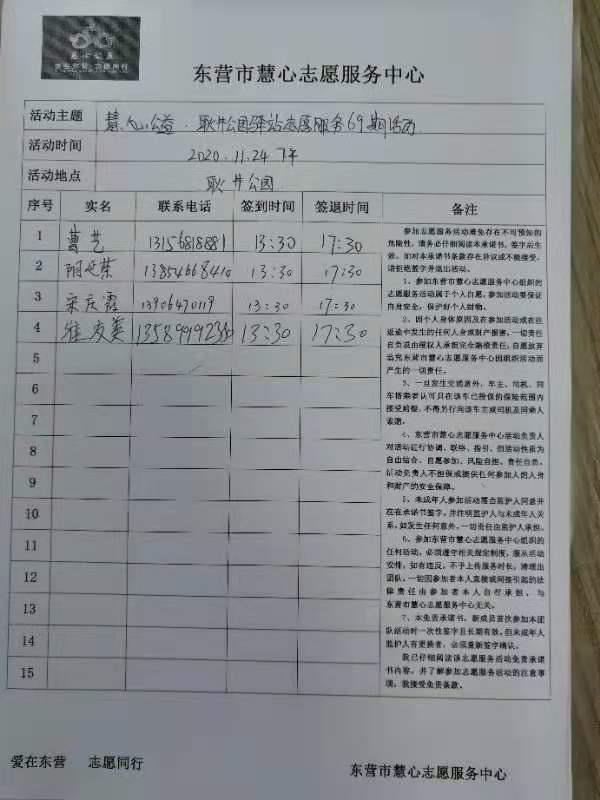 慧心公益
爱在东营 志愿同行
东营市慧心志愿服务中心
活动主题 慧心公益·耿井公园驿站志愿服务69期活动
活动时间 2020.11.24 下午
活动地点 耿井公园
序号 实名 联系电话 签到时间 签退时间 备注
1 曹艺 13156818881 13:30 17:30
2 13854668410 13:30 17:30
3 宋庆霞 13906470119 13:30 17:30
4 13:30 17:30
5
6
7
8
9
10
11
12
13
14
15
参加志愿服务活动难免存在不可预知的
危险性，请务必仔细阅读本承诺书，签字后生
效。如对本承诺书条款存在异议或不能接受，
请拒绝签字并退出活动。
1、参加东营市慧心志愿服务中心组织的
志愿服务活动属于个人自愿，参加活动要保证
自身安全，保护好个人财物。
2、因个人身体原因及在参加活动或在往
返途中发生的任何人身或财产损害，一切责任
自负或由侵权人承担完全赔偿责任，自愿放弃
追究东营市慧心志愿服务中心因组织活动而
产生的一切责任。
3、一旦发生交通意外，车主、司机、同
车搭乘者认可只在该车已投保的保险范围内
接受赔偿，不得另行向该车主或司机及同乘人
索赔。
4、东营市慧心志愿服务中心活动负责人
对活动进行协调、联络、指引，但活动性质为
自由结合、自愿参加、风险自担、责任自负。
活动负责人不担保或提供任何参加人的人身
和财产的安全保障。
5、未成年人参加活动需由监护人同意并
在在承诺书签字，并注明监护人与未成年人关
系，如发生任何意外，一切责任由监护人承担。
6、参加东营市慧心志愿服务中心组织的
任何活动，必须遵守相关规定制度，服从活动
安排，如有违反，不予上传服务时长，清理出
团队。一切因参加者本人直接或间接引起的法
律责任由参加者本人自行承担，与
东营市慧心志愿服务中心无关。
7、本免责承诺书，新成员首次参加本团
队活动时一次性签字且长期有效。但未成年人
监护人有更换者，必须重新签字确认。
我已仔细阅读该志愿服务活动免责承诺
书内容，并了解参加志愿服务活动的注意事
项，我接受免责条款。
爱在东营 志愿同行
东营市慧心志愿服务中心